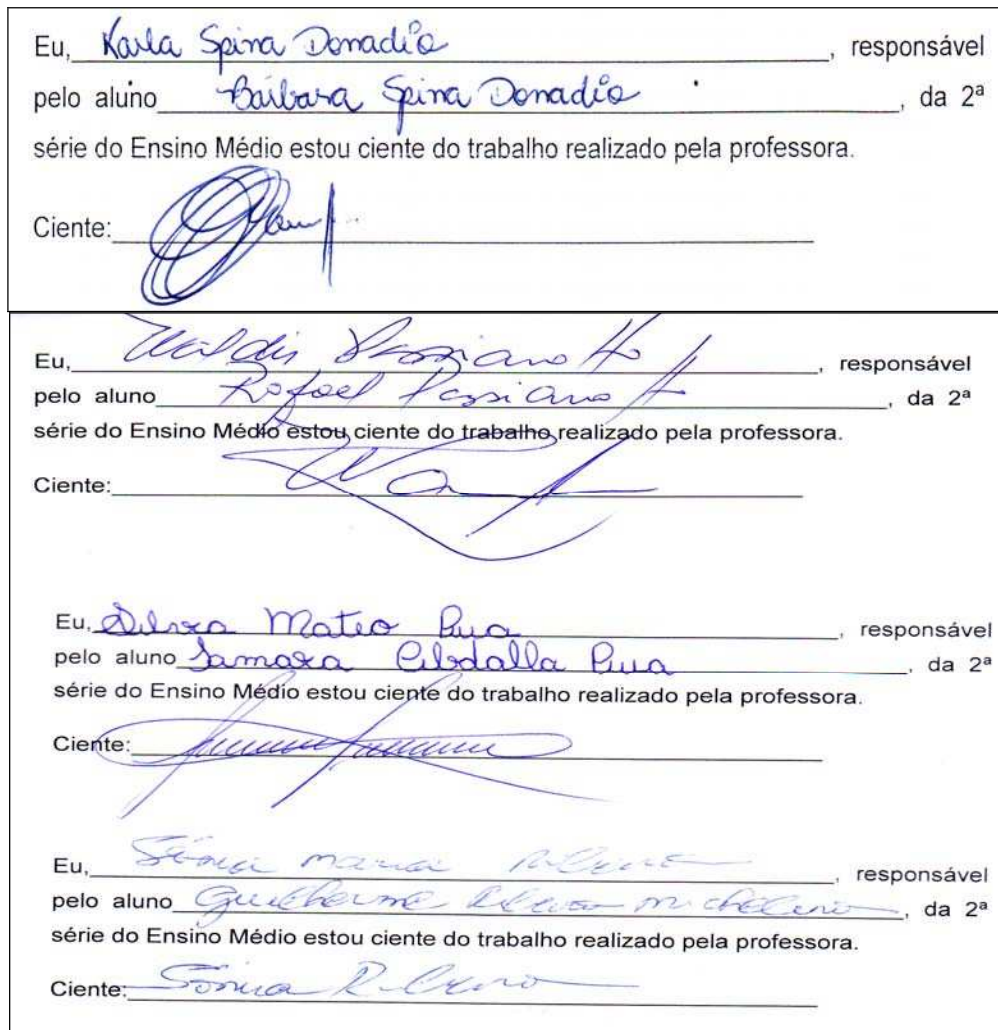 Eu, Karla Spina Donadio, responsável
pelo aluno Bárbara Spina Donadio, da 2ª
série do Ensino Médio estou ciente do trabalho realizado pela professora.
Ciente:
Eu, , responsável
pelo aluno Rafael, da 2ª
série do Ensino Médio estou ciente do trabalho realizado pela professora.
Ciente:
Eu, Mateo, responsável
pelo aluno Samara Abdalla, da 2ª
série do Ensino Médio estou ciente do trabalho realizado pela professora.
Ciente:
Eu, Sônia Maria, responsável
pelo aluno Guilherme, da 2ª
série do Ensino Médio estou ciente do trabalho realizado pela professora.
Ciente: Sônia